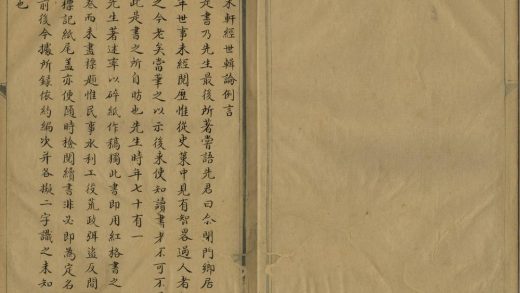 末軒經世輯論例言
是書乃先生最後所著嘗語先君曰余閉門鄉居
年世事未經閱歷惟從史策中見有智畧過人者
之今老矣當筆之以示後來使知讀書者不可不
此是書之所自昉也先生時年七十有一
先生著述率以碎紙作稿獨此書即用紅格書之
叁而未盡標題惟民事水利工役荒政弭盜反間
標記紙尾盖亦使隨時檢閱續書非必即為定名
前後今據所錄依約編次并各擬二字識之未知
也